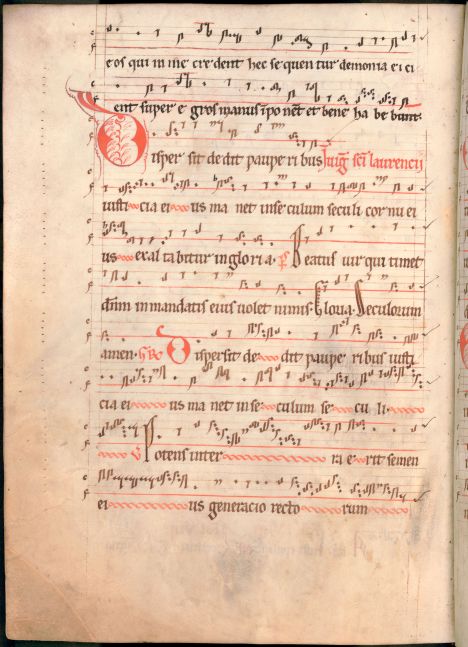 eos qui in me credent hec sequentur demonia eici
ent super egros manus īponēt et bene habebunt.
Dispersit dedit pauperibus Juig̃ sc̄i laurencij
iusticia eius manet inseculum seculi cornu ei
us exaltabitur in gloria. p̄s Beatus vir qui timet
dn̄m in mandatis eius uolet nimis. Gloria. Seculorum
amen. Gro Dispersit dedit pauperibus iusti
cia eius manet in seculum seculi
v Potens in terra erit semen
eius generacio rectorum